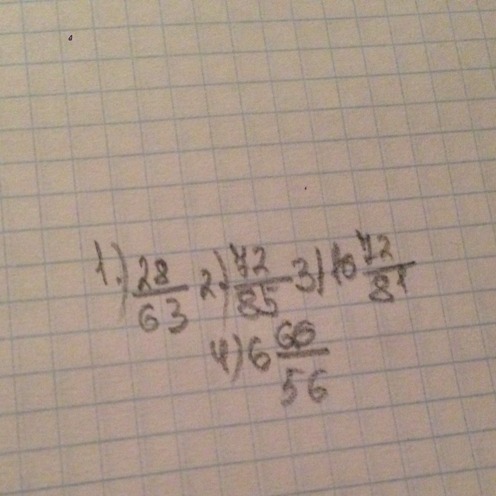 1.) 28/63 2.) 72/85 3) 10 72/81
4) 6 66/56